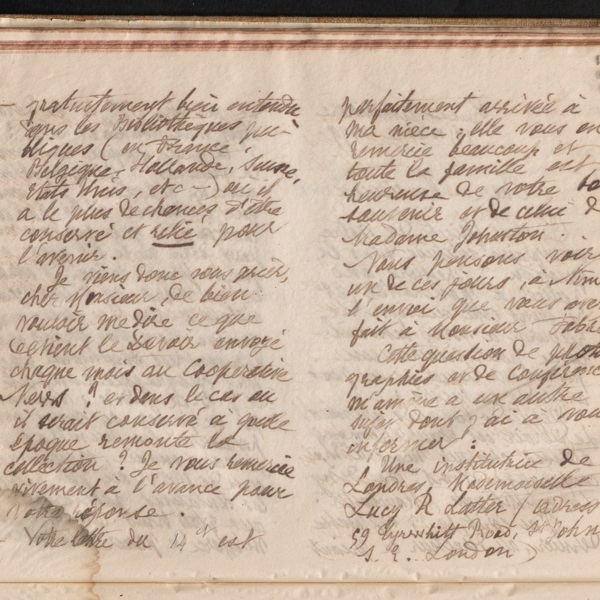 gratuitement bien entendu
dans les Bibliothèques pu-
bliques (en France,
Belgique, Hollande, Suisse,
Etats Unis, etc -) où il
a le plus de chances d'être
conservé et relié pour
l'avenir.
Je viens donc vous prier,
cher Monsieur, de bien
vouloir me dire ce que
devient le Devoir envoyé
chaque mois au Cooperative
News ? et dans le cas où
il serait conservé à quelle
époque remonte la
collection ? Je vous remercie
vivement à l'avance pour
votre réponse.
Votre lettre du 14 ct est
parfaitement arrivée à
ma nièce ; elle vous en
remercie beaucoup et
toute la famille est
heureuse de votre
souvenir et de celui
Madame Johnston.
Nous pensons voir
un de ces jours, à
l'envoi que vous
fait à Monsieur
Cette question de
graphies et de
m'amène à un autre
sujet dont j'ai à vous
informer :
Une institutrice de
Londres, Mademoiselle
Lucy R Latter (adresse
59 Road, St John
S. E. London)